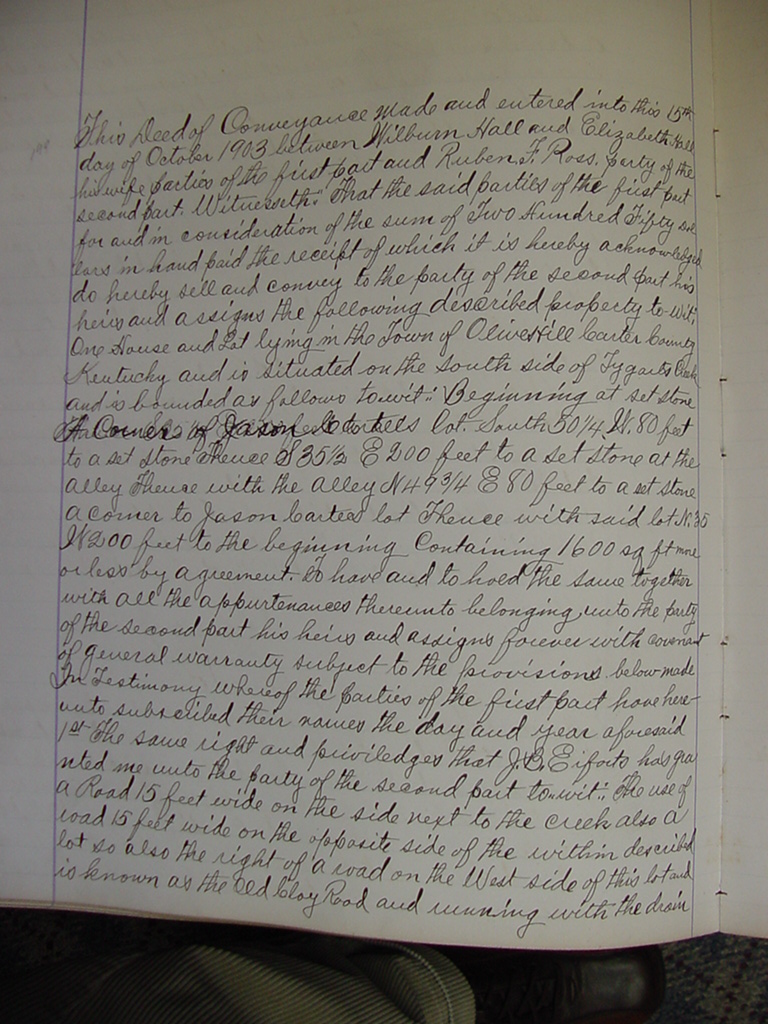 This Deed of Conveyance made and entered into this 15th
day of October 1903 between Wilburn Hall and Elizabeth Hall
his wife parties of the first part and Ruben F. Ross. party of the
second part. Witnesseth:" That the said parties of the first part
for and in consideration of the sum of Two Hundred Fifty dol
lars in hand paid the receipt of which it is hereby acknowledged
do hereby sell and convey to the party of the second part his
heirs and assigns the following described property to-wit;
One House and Lot lying in the Town of Olive Hill Carter County
Kentucky and is situated on the South side of Tygarts Creek
and is bounded as follows to-wit:: Beginning at set stone
A Corner of Jason Carters lot. South 50 1/4 W. 80 feet
to a set stone thence S 35 1/2 E 200 feet to a set stone at the
alley Thence with the alley N 49 3/4 E 80 feet to a set stone
a corner to Jason Carters lot Thence with said lot N. 35
W 200 feet to the beginning Containing 1600 sq ft more
or less by agreement. To have and to hold the same together
with all the appurtenances thereunto belonging, unto the party
of the second part his heirs and assigns forever with covenant
of general warranty subject to the provisions below made
In Testimony whereof the parties of the first part have here-
unto subscribed their names the day and year aforesaid
1st The same right and priviledges that J.B. Eiforts has gra
nted me unto the party of the second part to-wit:: The use of
a Road 15 feet wide on the side next to the creek also a
road 15 feet wide on the opposite side of the within described
lot so also the right of a road on the West side of this lot and
is known as the Old Clay Road and running with the drain